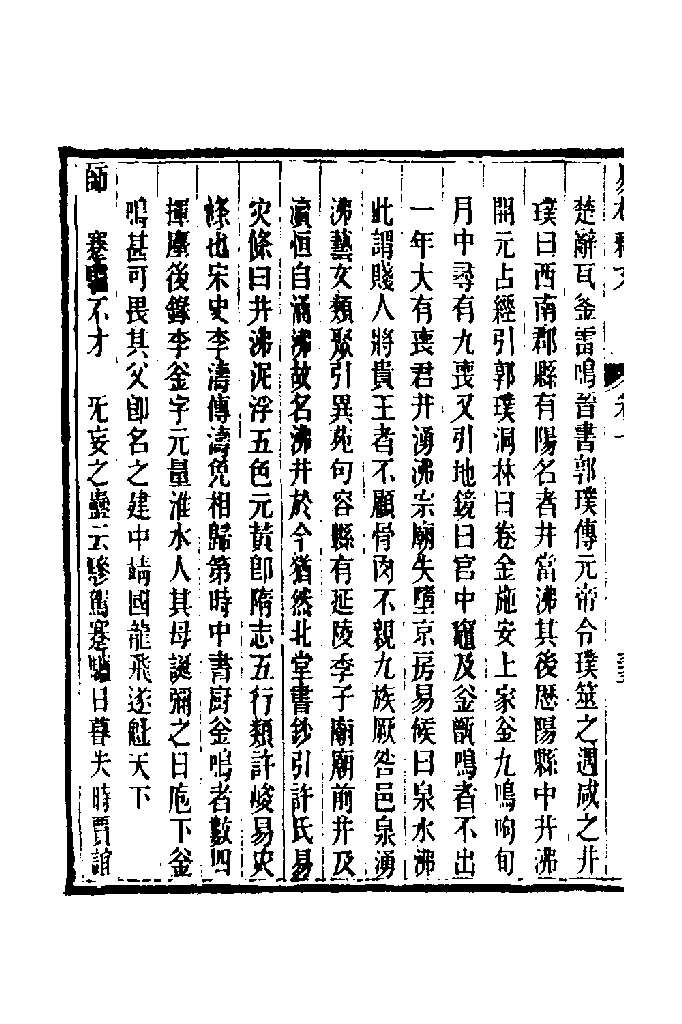 楚辭瓦釜雷鳴晉書郭璞傳元帝令璞筮之遇咸之井
璞曰西南郡縣有陽名者井當沸其後歷陽縣中井沸
開元占經引郭璞洞林曰卷金施安上家釜九鳴呴旬
月中尋有九喪又引地鏡曰宮中竈及釜甑鳴者不出
一年大有喪君井湧沸宗廟失墮京房易候曰泉水沸
此謂賤人將貴王者不顧骨肉不親九族厥咎邑泉湧
沸藝文類聚引異苑句容縣有延陵季子廟廟前井及
瀆恒自涌沸故名沸井於今猶然北堂書鈔引許氏易
災條曰井沸泥浮五色元黃卽隋志五行類許峻易災
條也宋史李濤傳濤免相歸第時中書厨釜鳴者數四
揮麈後錄李釜字元量淮水人其母誕彌之日庖下釜
鳴甚可畏其父卽名之建中靖國龍飛遂魁天下
師　蹇驢不才　无妄之蠱云驂駕蹇驢日暮失時賈誼